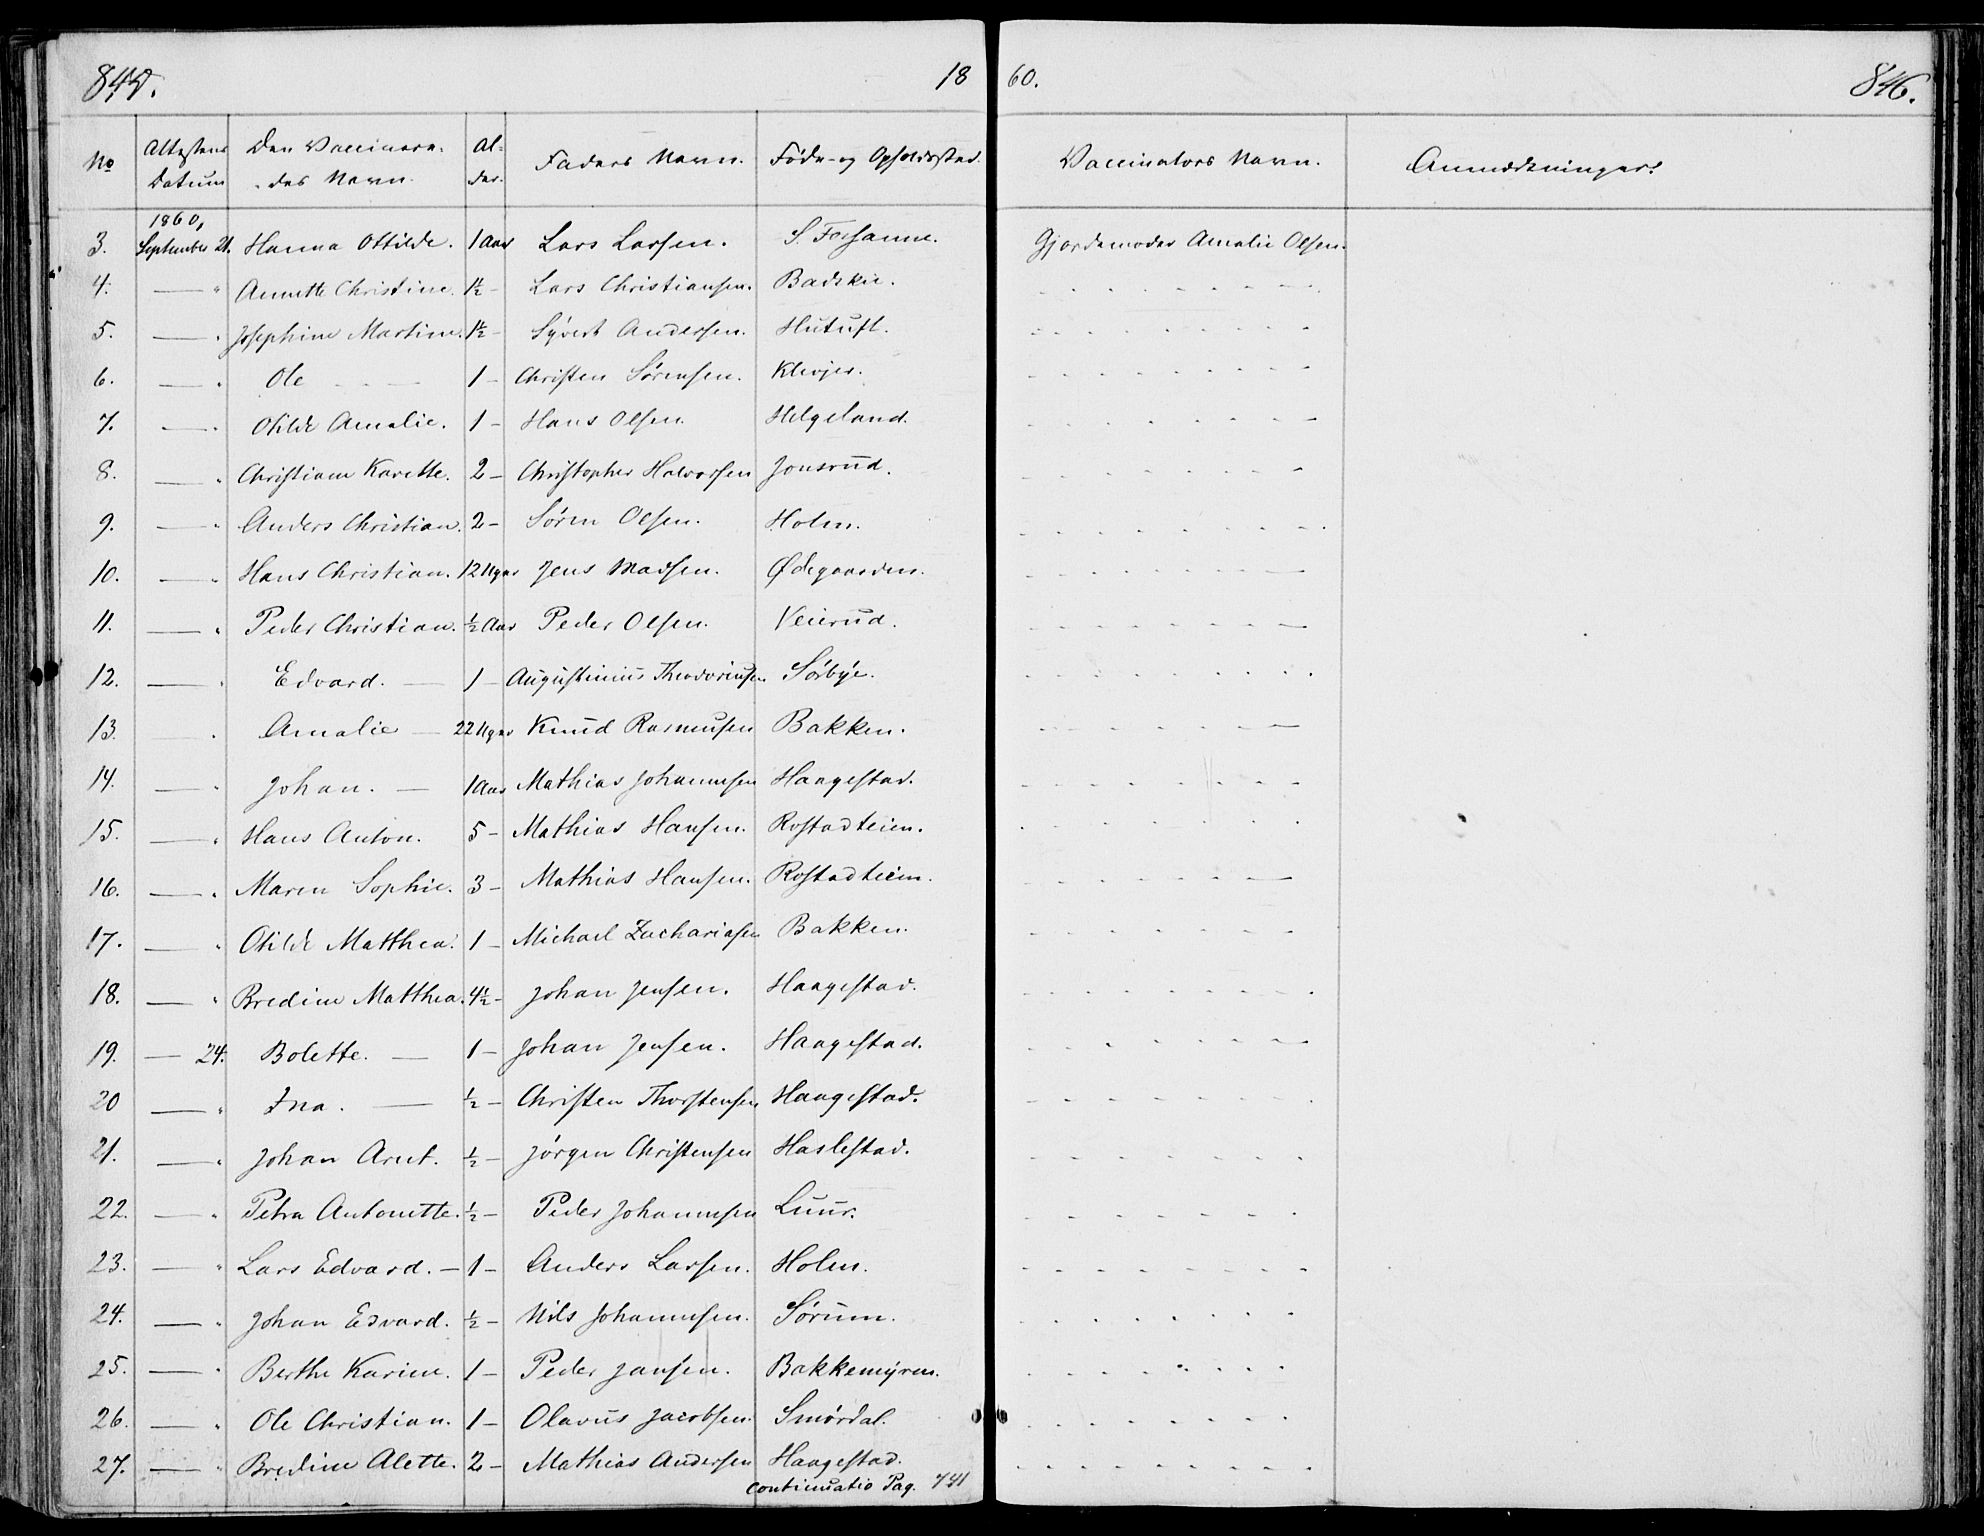 845. 18 60. 846.
No Attestens Datum Den Vaccinere-des Navn. Al-der. Faders Navn. Føde- og Opholdsstad. Vaccinators Navn. Anmærkninger.
1860,
3. September 21. Hanna Ottilde. 1 Aar Lars Larsen. S. Fossanne. Gjordemoder Amalie Olsen.
4. — " Annette Christine. 1½ - Lars Christiansen. Badskie.
5. — " Josephine Martine. 1½ - Syvert Andersen. Hutuft.
6. — " Ole — 1 - Christen Sørensen. Klevjer.
7. — " Otilde Amalie. 1 - Hans Olsen. Helgeland.
8. — " Christiane Karette. 2 - Christopher Halvorsen Jonsrud.
9. — " Anders Christian. 2 - Søren Olsen. Holm.
10. — " Hans Christian. 12 Uger Jens Madsen. Ødegaarden.
11. — " Peder Christian. ½ Aar Peder Olsen. Veierud.
12. — " Edvard. — 1 - Augustinius Theodoriusen Sørbye.
13. " Amalie — 22 Uger Knud Rasmusen Bakken.
14. — " Johan. — 1 Aar Mathias Johannesen Haagestad.
15. — " Hans Anton. 5 - Mathias Hansen. Rostadteien.
16. — " Maren Sophie. 3 - Mathias Hansen. Rostadteien.
17. — " Otilde Matthea. 1 - Michael Zachariasen Bakken.
18. — " Bredine Matthea. 4½ - Johan Jensen. Haagestad.
19. — 24. Bolette. — 1 - Johan Jensen. Haagestad.
20 — " Ina. — ½ - Christen Thorstensen Haagestad.
21. — " Johan Arnt. ½ - Jørgen Christensen Haslestad.
22. — " Petra Antonette. ½ - Peder Johannesen Luur.
23. — " Lars Edvard. — 1 - Anders Larsen. Holm.
24. — " Johan Edvard. ½ - Nils Johannesen. Sørum.
25. — " Berthe Karine. 1 - Peder Jansen. Bakkemyren.
26. — " Ole Christian. 1 - Olavus Jacobsen. Smørdal.
27. — " Bredine Alette. 2 - Mathias Andersen Haagestad.
continuatio Pag. 741